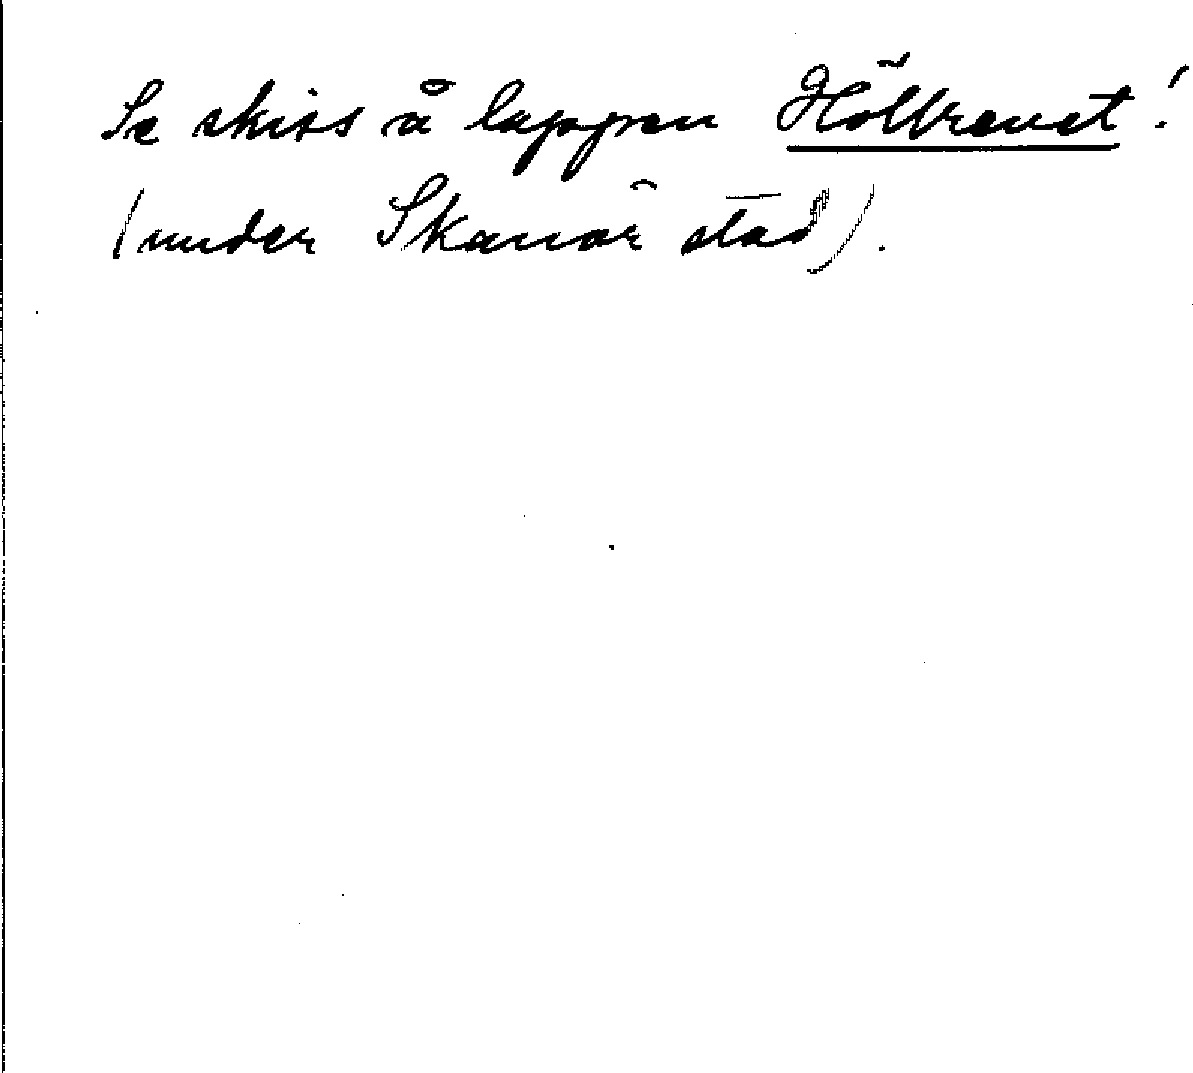 Se skiss å lappen Hölbrenet!
(under Skanör stad).